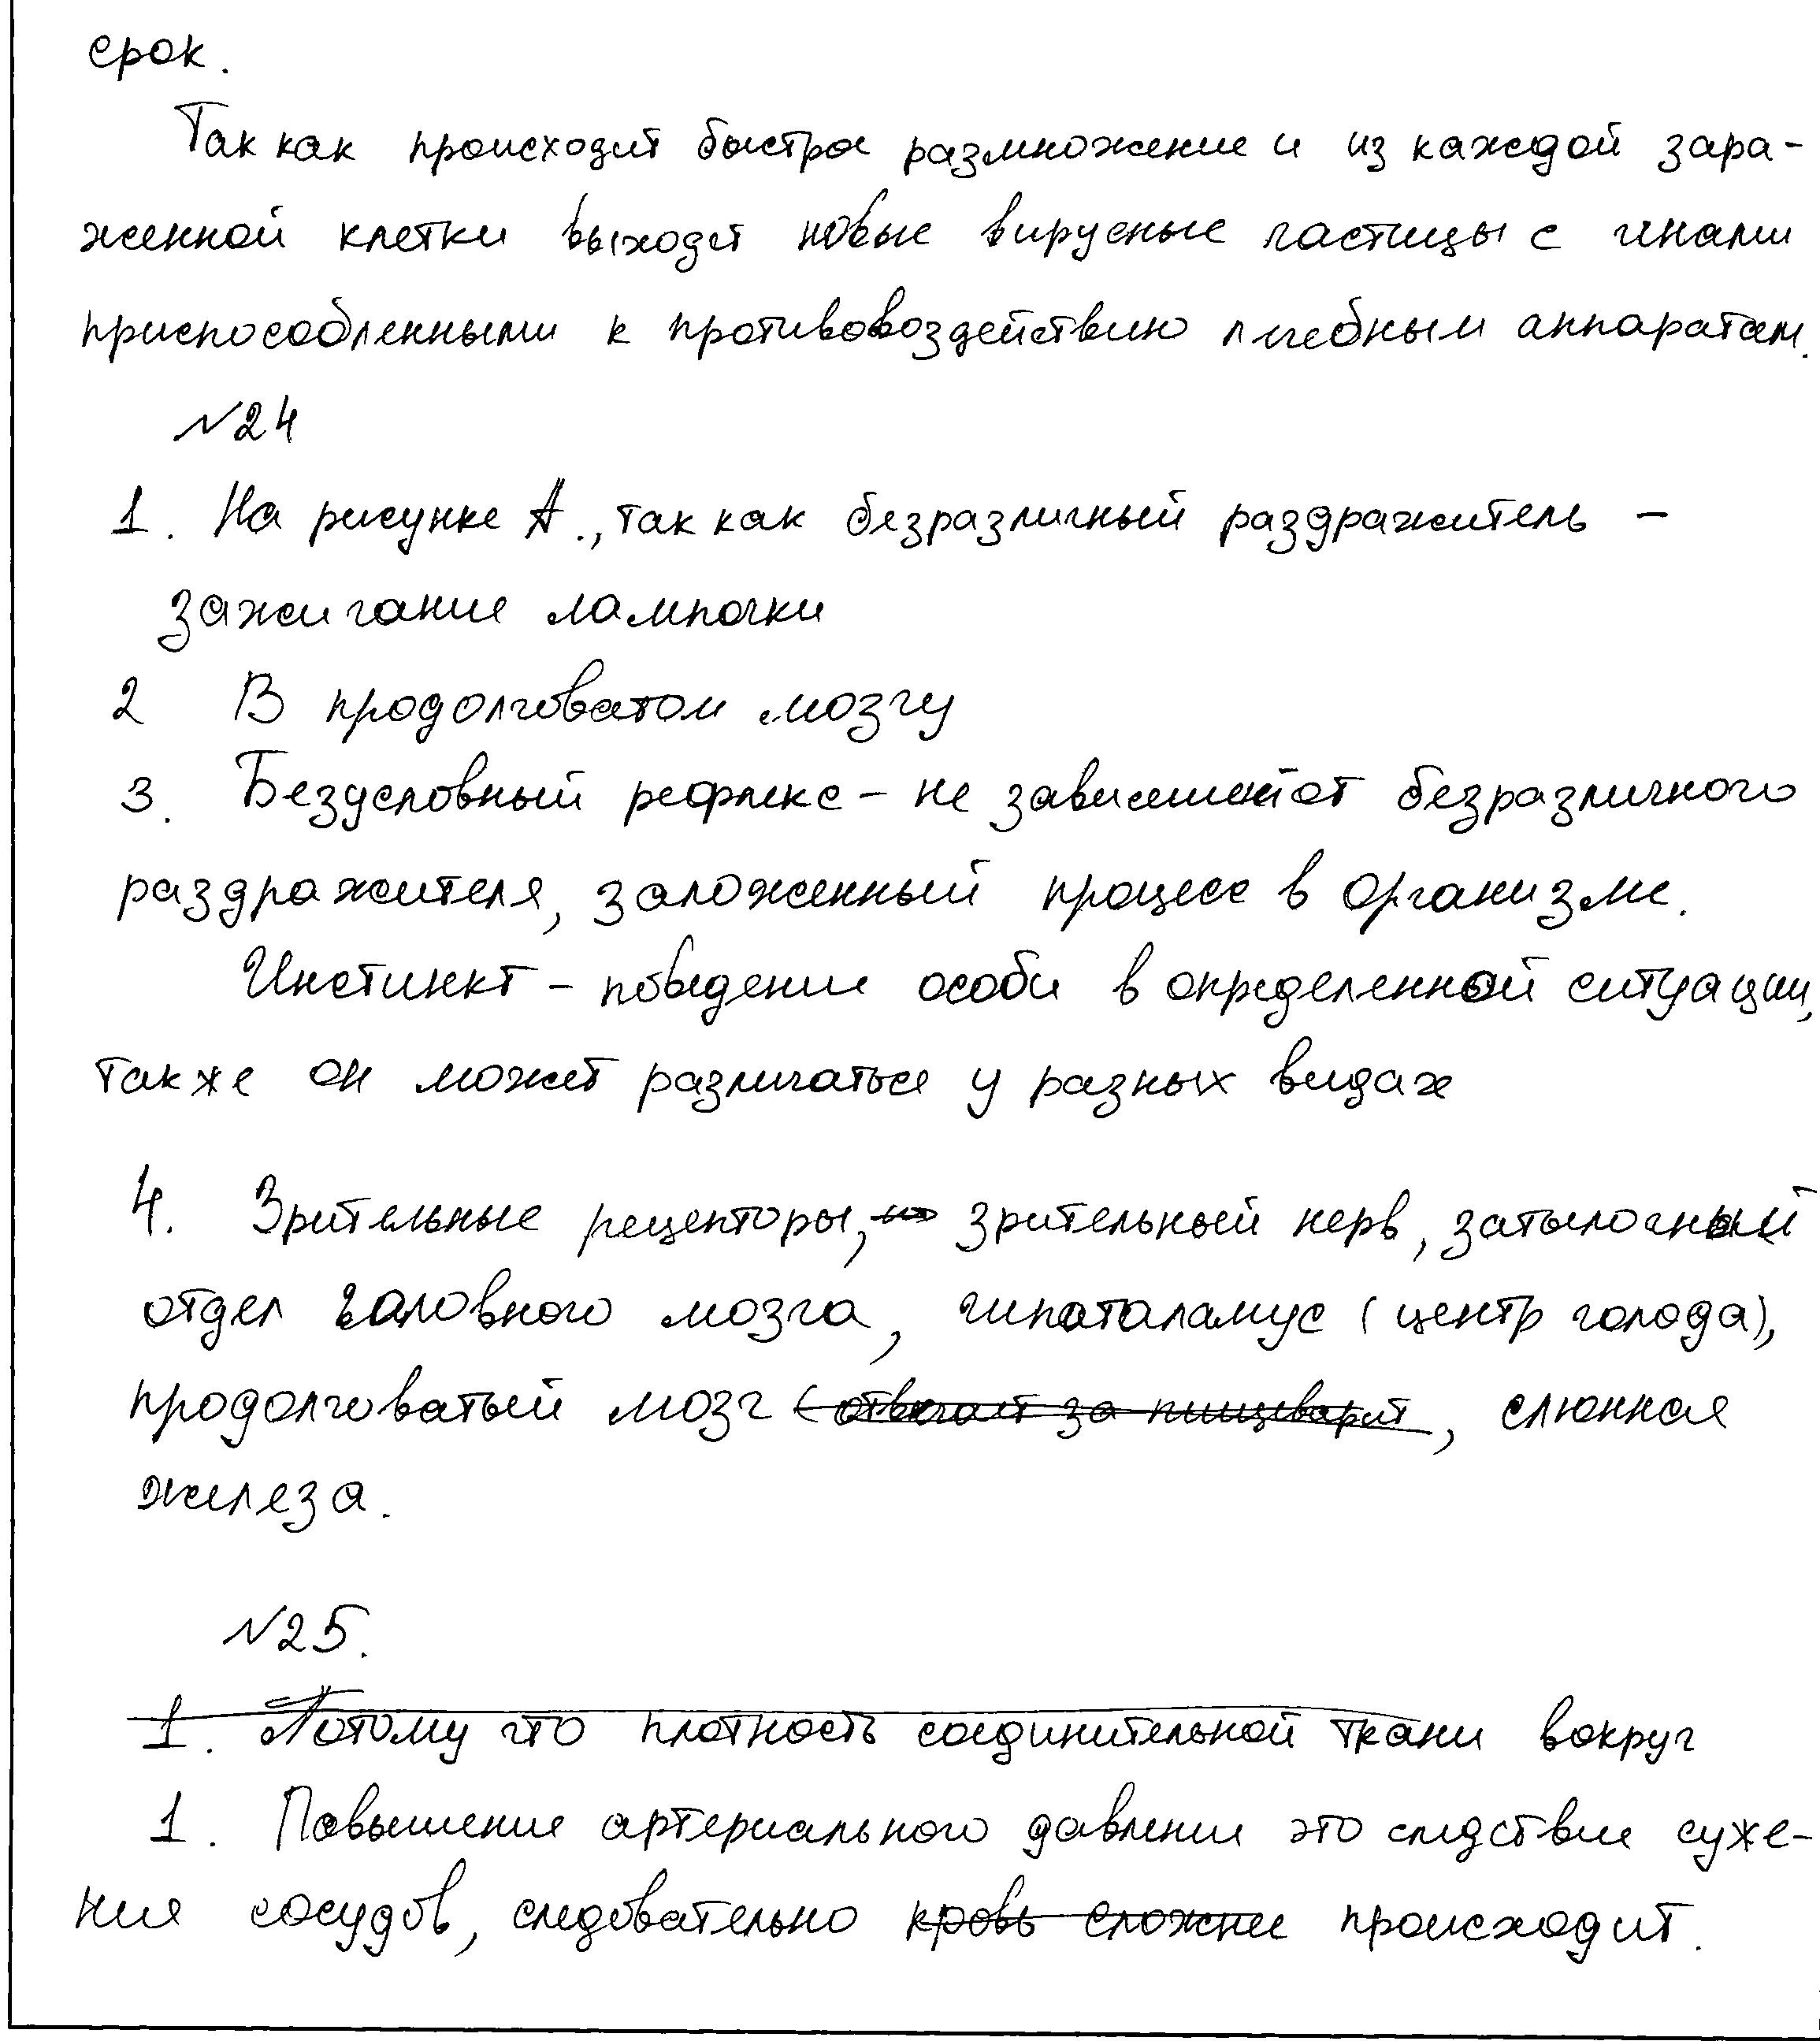 срок.
Так как происходит быстрое размножение и из каждой зара-
женной клетки выходят новые вирусные частицы с генами
приспособленными к противовоздействию лечебным аппаратам.
№24
1. На рисунке А., так как безразличный раздражитель -
зажигание лампочки
2 В продолговатом мозгу
3. Безусловный рефлекс - не зависимый от безразличного
раздражителя, заложенный процесс в организме.
Инстинкт - поведение особи в определенной ситуации,
также он может различаться у разных видах
4. Зрительные рецепторы, зрительный нерв, затылочный
отдел головного мозга, гипоталамус (центр голода),
продолговатый мозг (отвечает за пищеварит, слюнная
железа.
№25.
1. Потому что плотность соединительной ткани вокруг
1. Повышение артериального давления это следствие суже-
ния сосудов, следовательно кровь сложнее происходит.